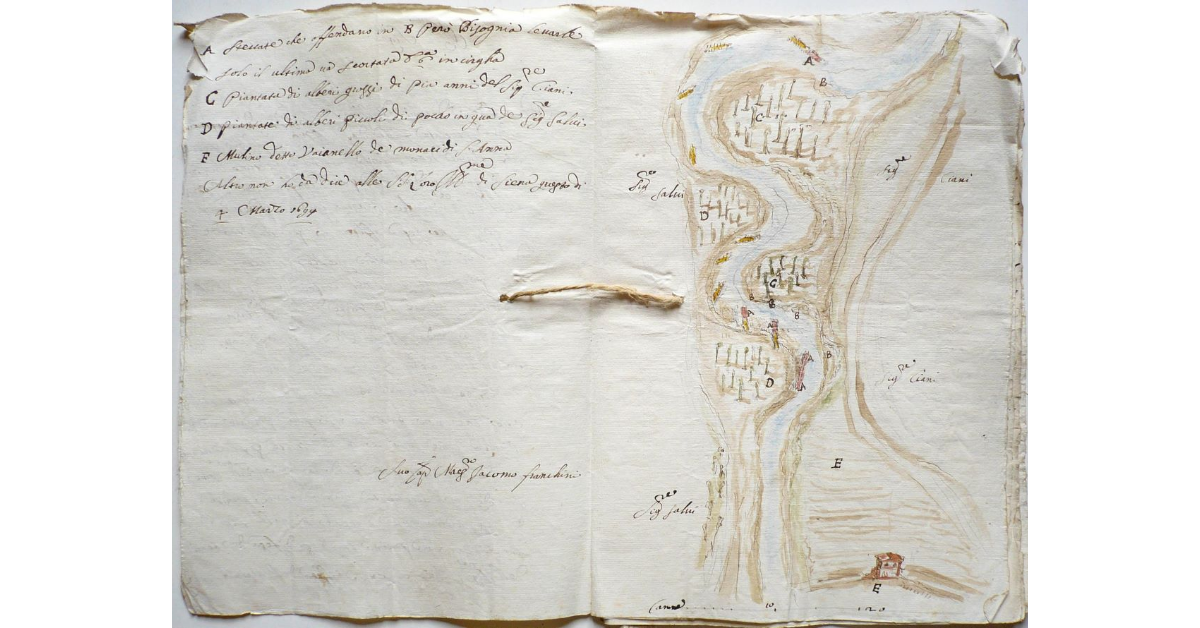 A Steccate che offendano in B però Bisognia levarle
solo il ultima
C Piantata di alberi grossi di più anni del Sig.re Ciani.
D piantate di alberi piccoli di poco in qua de Sig.re Salvi.
E Mulino detto Vaianello de monaci di S. Anna
Altro non ho da dire alle SS. Loro Ill.me di Siena questo di
4 Marzo 1694
Jacomo Franchini
A
B
C
Sig.re Ciani
Sig.re Salvi
D
C
B
B
A
B
A
A
B
A
D
Sig.re Ciani
E
Sig.re Salvi
E
Canne 10 20